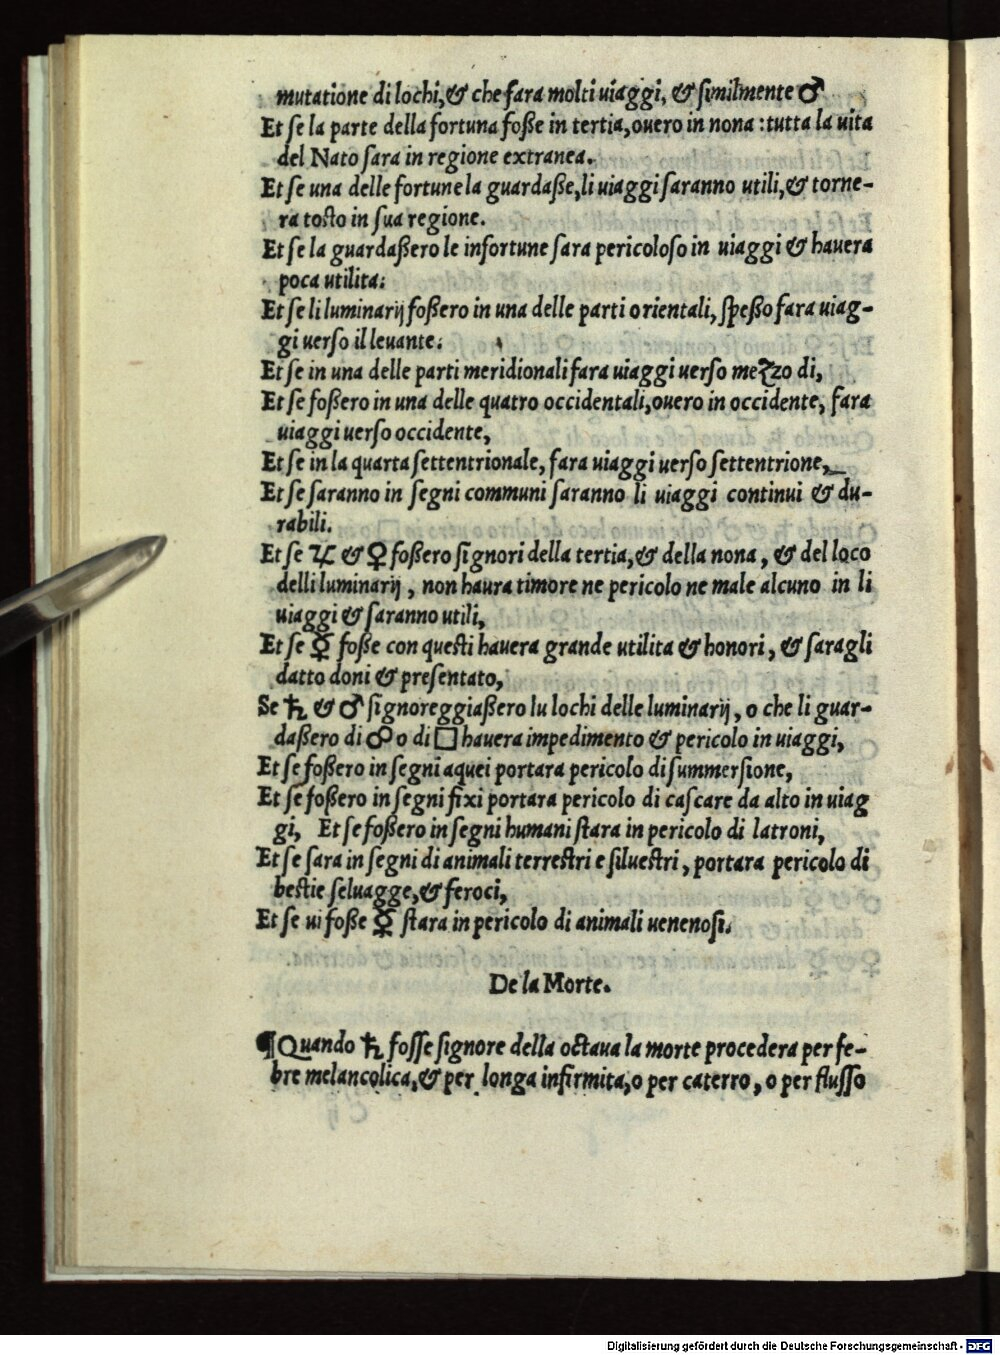 mutatione di lochi, & che fara molti uiaggi, & similmente ♂
Et se la parte della fortuna foße in tertia, ouero in nona : tutta la uita
del Nato sara in regione extranea.
Et se una delle fortune la guardaße, li uiaggi saranno utili, & torne-
ra tosto in sua regione.
Et se la guardaßero le infortune sara pericoloso in uiaggi & hauera
poca utilita:
Et se li luminarij foßero in una delle parti orientali, speßo fara uiag-
gi uerso il leuante:
Et se in una delle parti meridionali fara uiaggi uerso mezzo di,
Et se foßero in una delle quatro occidentali, ouero in occidente, fara
uiaggi uerso occidente,
Et se in la quarta settentrionale, fara uiaggi uerso settentrione,
Et se saranno in segni communi saranno li uiaggi continui & du-
rabili.
Et se ♃ & ♀ foßero signori della tertia, & della nona, & del loco
delli luminarij, non haura timore ne pericolo ne male alcuno in li
uiaggi & saranno utili,
Et se ☿ foße con questi hauera grande utilita & honori, & saragli
datto doni & presentato,
Se ♄ & ♂ signoreggiaßero lu lochi delle luminarij, o che li guar-
daßero di ☍ o di □ hauera impedimento & pericolo in uiaggi,
Et se foßero in segni aquei portara pericolo di summersione,
Et se foßero in segni fixi portara pericolo di cascare da alto in uiag
gi, Et se foßero in segni humani stara in pericolo di latroni,
Et se sara in segni di animali terrestri e siluestri, portara pericolo di
bestie seluagge, & feroci,
Et se ui foße ☿ stara in pericolo di animali uenenosi.
De la Morte.
¶ Quando ♄ fosse signore della octaua la morte procedera per fe-
bre melancolica, & per longa infirmita, o per caterro, o per flusso
Digitalisierung gefördert durch die Deutsche Forschungsgemeinschaft - DFG